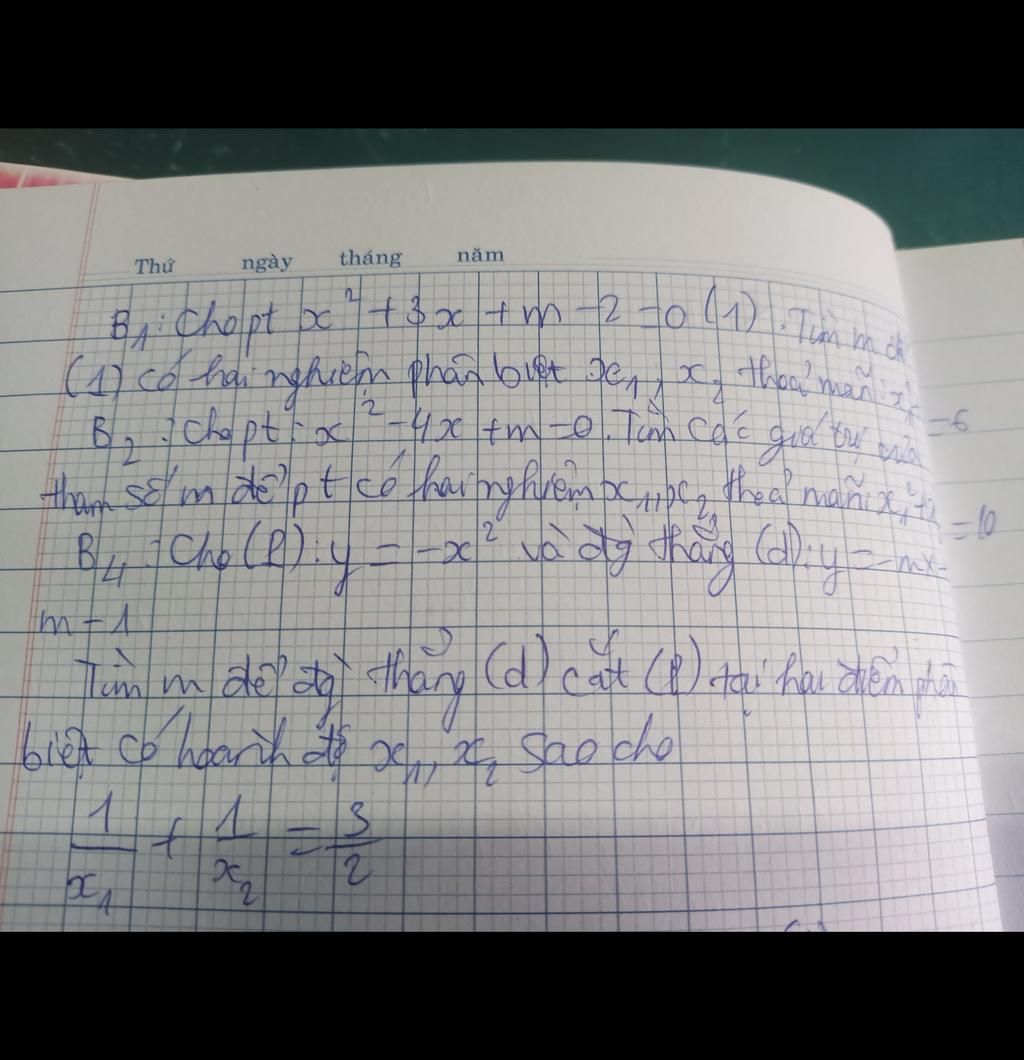 Thứ ngày tháng năm
B1: Cho pt x² + 3x + m - 2 = 0 (1). Tìm m để
(1) có hai nghiệm phân biệt x1, x2 thoả mãn: = 6
B2: Cho pt: x² - 4x + m = 0. Tìm các giá trị của
tham số m để pt có hai nghiệm x1, x2 thoả mãn: x1² + = 10
B4: Cho (P): y = -x² và đg thẳng (d): y = -mx -
m - 1
Tìm m để đg thẳng (d) cắt (P) tại hai điểm phân
biệt có hoành độ x1, x2 sao cho
1/x1 + 1/x2 = 3/2